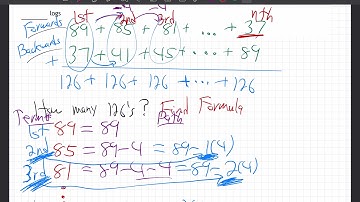 logs 1st -4 2nd -4 3rd nth
Forwards 89 + 85 + 81 + ... + 37
Backwards + 37 + 41 + 45 + ... + 89
126 + 126 + 126 + ... + 126
How many 126's? Find Formula
Term# Path
1st 89 = 89
2nd 85 = 89-4 = 89-1(4)
3rd 81 = 89-4-4 = 89-2(4)